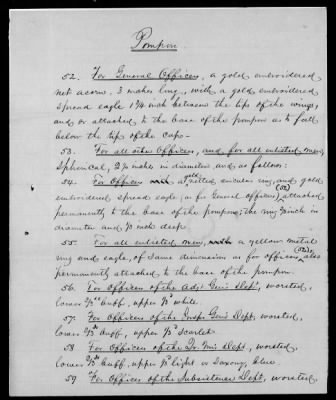 Pompon.
52. For General Officers, a gold embroidered
net acorn, 3 inches long, with a gold embroidered
spread eagle 1¾ inch between the tips of the wings,
and so attached to the base of the pompon as to fall
below the tip of the cap.
53. For all other Officers, and for all enlisted men,
spherical, 2½ inches in diameter and as follows:
54. For Officers with a gold netted circular ring, and gold
embroidered spread eagle, as for General officers, (52) attached
permanently to the base of the pompon; the ring ¾ inch in
diameter and ½ inch deep.
55. For all enlisted men, with a yellow metal
ring and eagle, of same dimension as for officers, also
permanently attached to the base of the pompon.
56. For Officers of the Adjt Genl's Dept, worsted,
lower ⅔ds buff, upper ⅓d white.
57. For Officers of the Inspr Genl's Dept, worsted,
lower ⅔ds buff, upper ⅓d Scarlet.
58. For Officers of the Qr. Mr's Dept, worsted,
lower ⅔ds buff, upper ⅓d light or Saxony, blue.
59 For Officers of the Subsistence Dept, worsted,